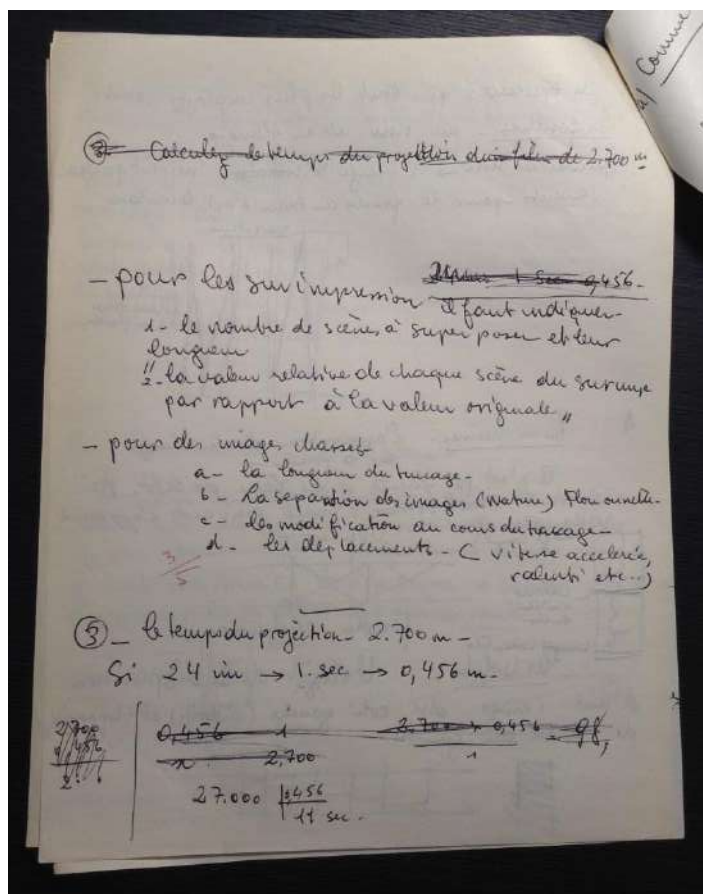 a/ Comme
③ Calculez le temps du projection d'un film de 2.700 m
24 im 1 Sec 0,456 -
- pour les surimpression il faut indiquer
1 - le nombre de scènes à superposer et leur
longueur
" 2 - la valeur relative de chaque scène du surimp
par rapport à la valeur originale "
- pour des images chassés
a - la longueur du trucage -
b - La separation des images (nature) Flou ou nette -
c - les modification au cours du trucage -
d - les déplacements - ( vitesse accelerée,
ralenti etc...)
3/5
③ _ le temps du projection - 2.700 m -
Si 24 im → 1. sec → 0,456 m -
2,700
0,456 1
2.700 x 0,456 = 98,
1
x 2,700
27.000 0,456
17 sec .